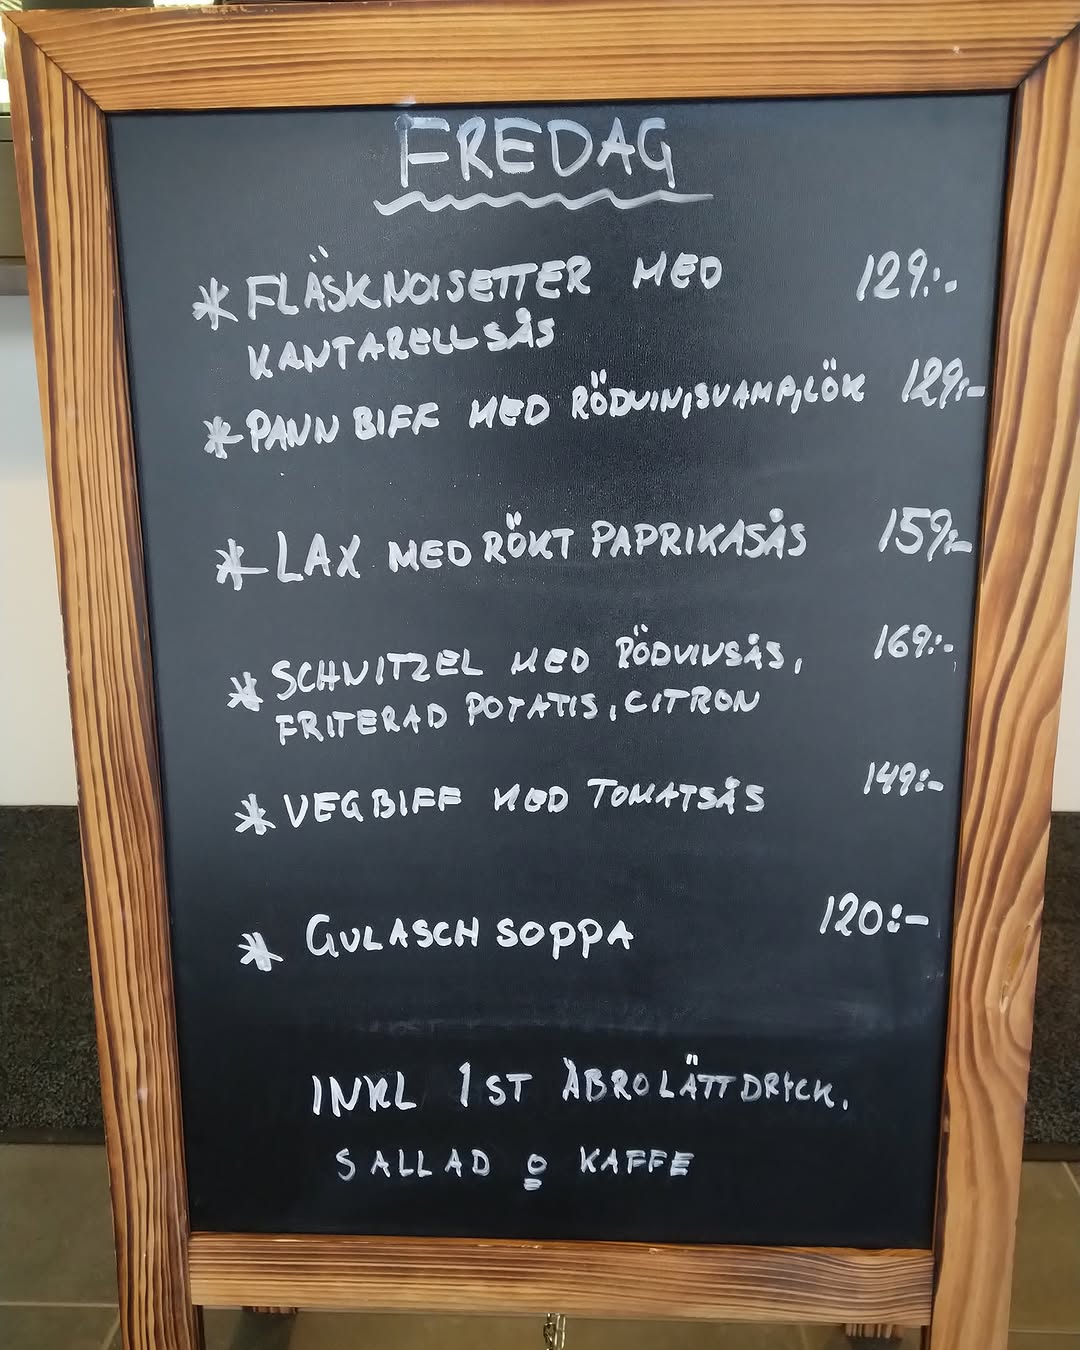 FREDAG
* FLÄSKNOISETTER MED 129:-
KANTARELLSÅS
* PANNBIFF MED RÖDVIN,SVAMP,LÖK 129:-
* LAX MED RÖKT PAPRIKASÅS 159:-
* SCHNITZEL MED RÖDVINSÅS, 169:-
FRITERAD POTATIS, CITRON
* VEGBIFF MED TOMATSÅS 149:-
* GULASCH SOPPA 120:-
INKL 1ST ÅBRO LÄTTDRYCK.
SALLAD o KAFFE